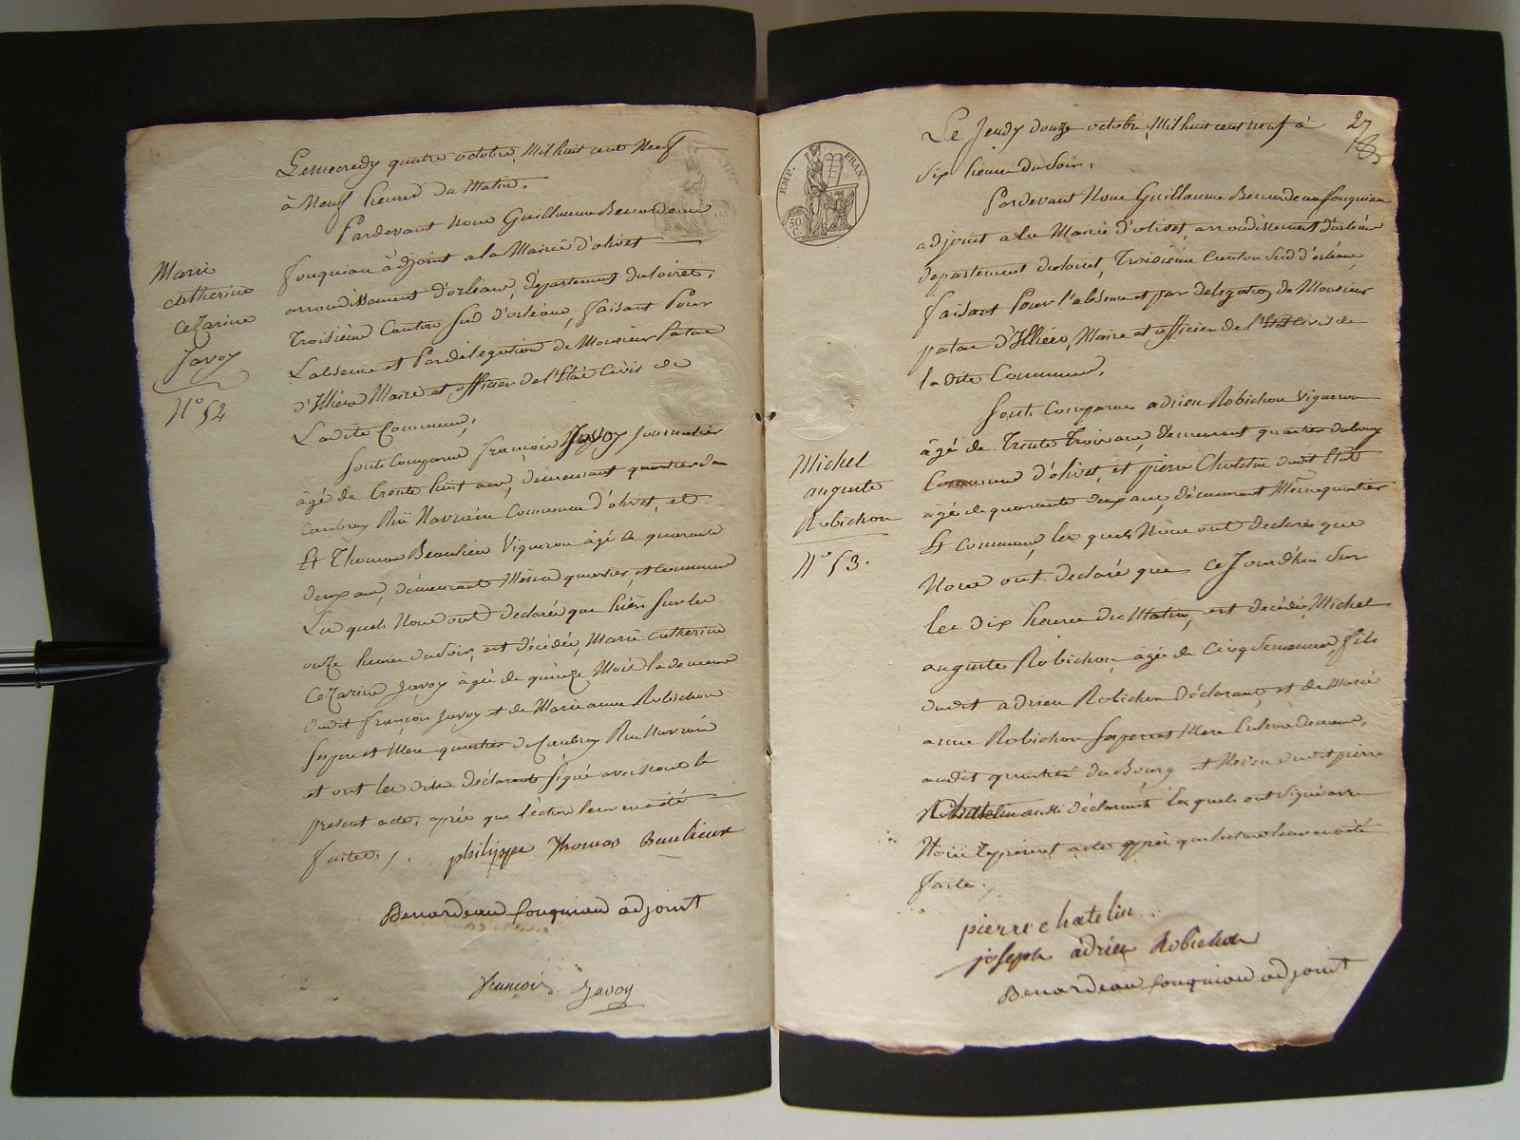 Le mercredy quatre octobre Mil huit cent Neuf
à Neuf heures du Matin.
Pardevant nous Guillaume Benardeau
fouqniau adjoint a la Mairie d'olivet
arrondissement d'orleans, departement du loiret,
Troisieme Canton sud d'orléans, faisant Pour
L'absence et Par délégation de Monsieur Patas
d'Illiers Maire et officier de l'Etat Civil de
Ladite Commune,
Sont Comparus françois Javoy journalier
âgé de trente huit ans, demeurant quartier du
Commune d'olivet, et
Thomas Beaulieu Vigneron âgé de quarante
deux ans, demeurant Même quartier, et Commune
Les quels Nous ont declaré que hier sur les
onze heures du soir, est décédée, Marie Catherine
Cezarine Javoy âgée de quinze Mois
dudit françois Javoy et de Marie anne Robichon
et Mere quartier de
et ont les dits déclarants signé avec nous le
present acte, après que lecture leur en a été
faite ,/.
philippe Thomas Baulieux
Benardeau fouqniau adjoint
françois Javoy
Marie
Catherine
Cezarine
Javoy
N° 52
27
Le Jeudy douze octobre Mil huit cent neuf à
six heures du soir,
Pardevant Nous Guillaume Benardeau fouqniau
adjoint a la Mairie d'olivet, arrondissement d'orléans
departement du loiret, Troisieme Canton Sud d'orléans,
faisant Pour l'absence et par delegation de Monsieur
patas d'Illiers, Maire et officier de l'Etat Civil de
ladite Commune,
Sont Comparus adrien Robichon Vigneron
âgé de Trente Trois ans, demeurant quartier du bourg
Commune d'olivet, et pierre Chatelin
âgé de quarante deux ans, demeurant Même quartier
et commune, les quels Nous ont declaré que
Nous ont declaré que Ce Jourd'hui sur
les dix heures du Matin, est decédé, Michel
auguste Robichon âgé de Cinq Semaines, fils
dudit adrien Robichon déclarant, et de Marie
anne Robichon Ses pere et Mere
audit quartier du Bourg et Voisin dudit pierre
Chatelin aussi déclarant Les quels ont signé avec
Nous le present acte après que lecture leur en a été
faite.
pierre chatelin
joseph adrien Robichon
Benardeau fouqniau adjoint
EMP. FRAN
Michel
auguste
Robichon
N° 53.